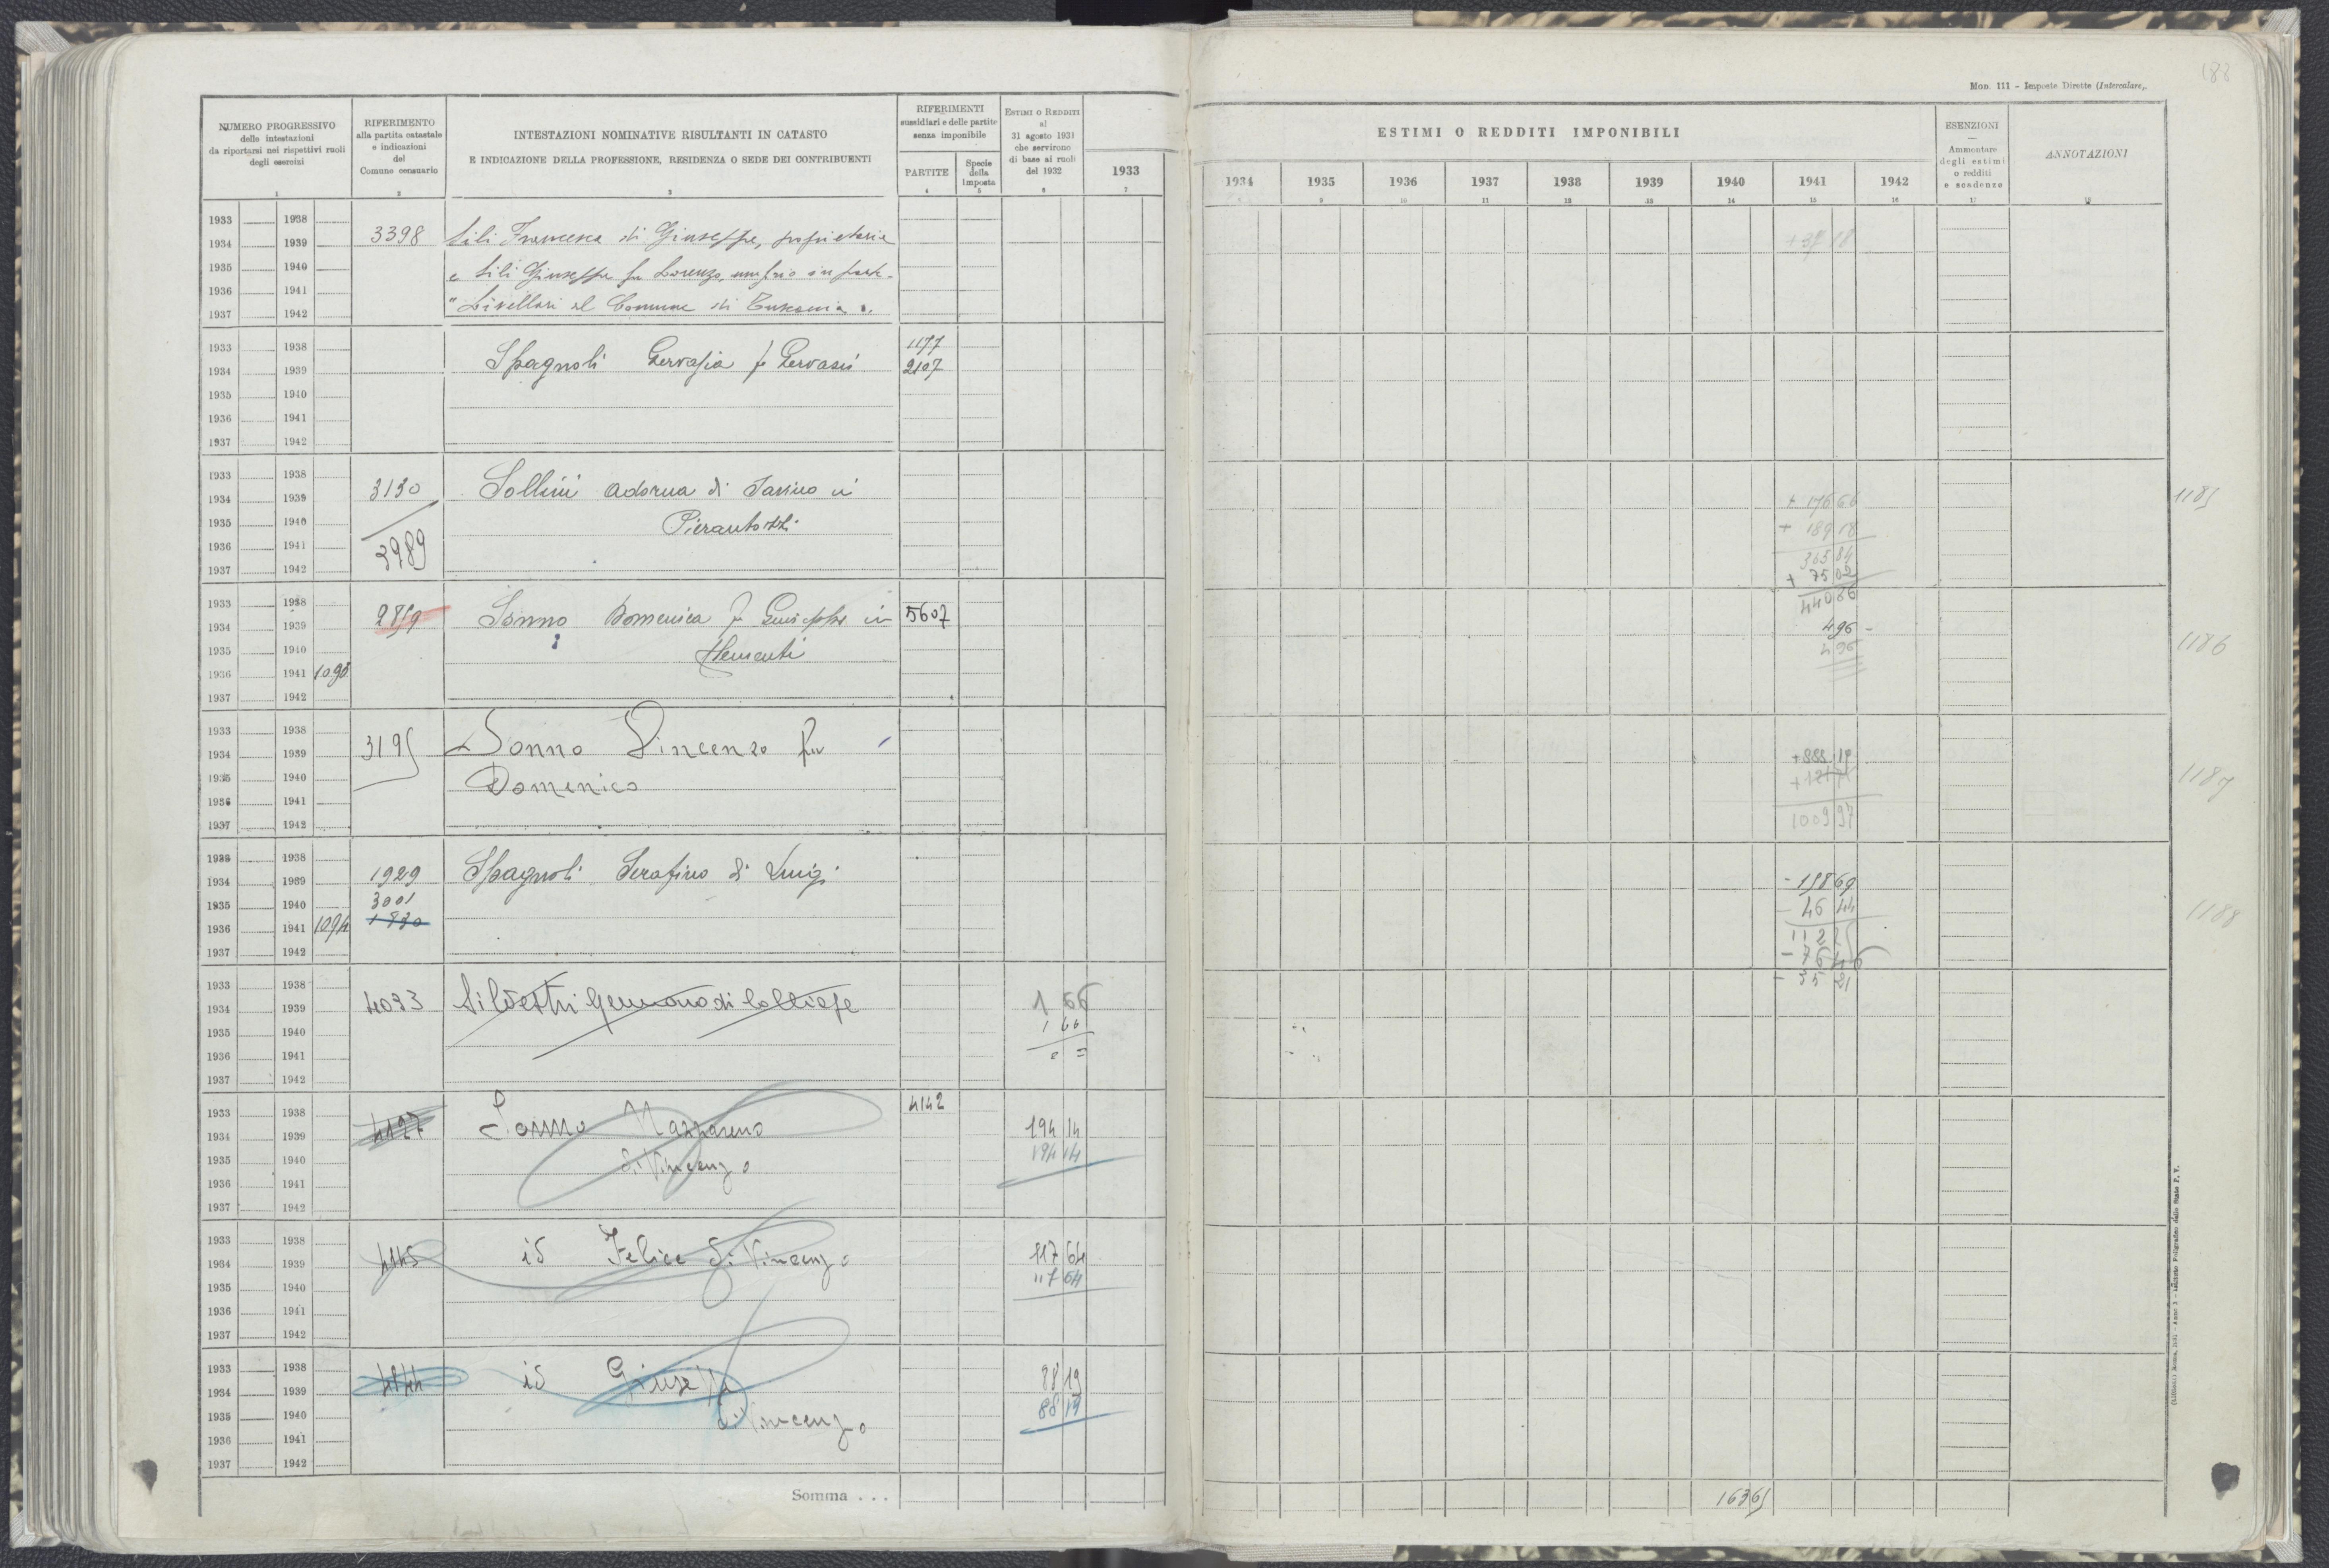 188
Mon. 111 - Imposte Dirette (Intercalare).
NUMERO PROGRESSIVO
delle intestazioni
da riportarsi nei rispettivi ruoli
degli esercizi
1
RIFERIMENTO
alla partita catastale
e indicazioni
del
Comune censuario
2
INTESTAZIONI NOMINATIVE RISULTANTI IN CATASTO
E INDICAZIONE DELLA PROFESSIONE, RESIDENZA O SEDE DEI CONTRIBUENTI
3
RIFERIMENTI
sussidiari e delle partite
senza imponibile
PARTITE
4
Specie
della
imposta
5
ESTIMI O REDDITI
al
31 agosto 1931
che servirono
di base ai ruoli
del 1932
6
1933
7
ESTIMI O REDDITI IMPONIBILI
1934 1935 1936 1937 1938 1939 1940 1941 1942
9 10 11 12 13 14 15 16
ESENZIONI
Ammontare
degli estimi
o redditi
e scadenze
17
ANNOTAZIONI
18
1933 1938
1934 1939 3398 Sili Francesca di Giuseppe, proprietaria
1935 1940 e Sili Giuseppe fu Lorenzo, in parte
1936 1941 "Livellari al Comune di
1937 1942
1933 1938 1177
1934 1939 Spagnoli Gervasia fu Gervasio 2107
1935 1940
1936 1941
1937 1942
1933 1938
1934 1939 3130 Sollini Adorna di Savino in + 176 66 1185
1935 1940 Pierantozzi + 189 18
1936 1941 3989 365 84
1937 1942 + 75 02
440 86
1933 1938
1934 1939 2859 Sonno Domenica fu Giuseppe in 5607 496 -
1935 1940 Clementi 496 1186
1936 1941 1093
1937 1942
1933 1938
1934 1939 3195 Sonno Vincenzo fu + 888 19
1935 1940 Domenico 1187
1936 1941 1009 97
1937 1942
1933 1938
1934 1939 1929 Spagnoli Serafino di Luigi - 158 69
1935 1940 3001 46 44 1188
1936 1941 1094 1930 112 25
1937 1942 - 76 46
- 35 21
1933 1938
1934 1939 4033 Silvestri Gennaro di 1 66
1935 1940 1 66
1936 1941 0 =
1937 1942
1933 1938 4142
1934 1939 4127 Sonno Nazzareno 194 14
1935 1940 di Vincenzo 194 14
1936 1941
1937 1942
1933 1938
1934 1939 4145 id Felice di Vincenzo 117 64
1935 1940 117 64
1936 1941
1937 1942
1933 1938
1934 1939 4144 id Giuseppe 88 19
1935 1940 di Vincenzo 88 19
1936 1941
1937 1942
Somma . . . 16365